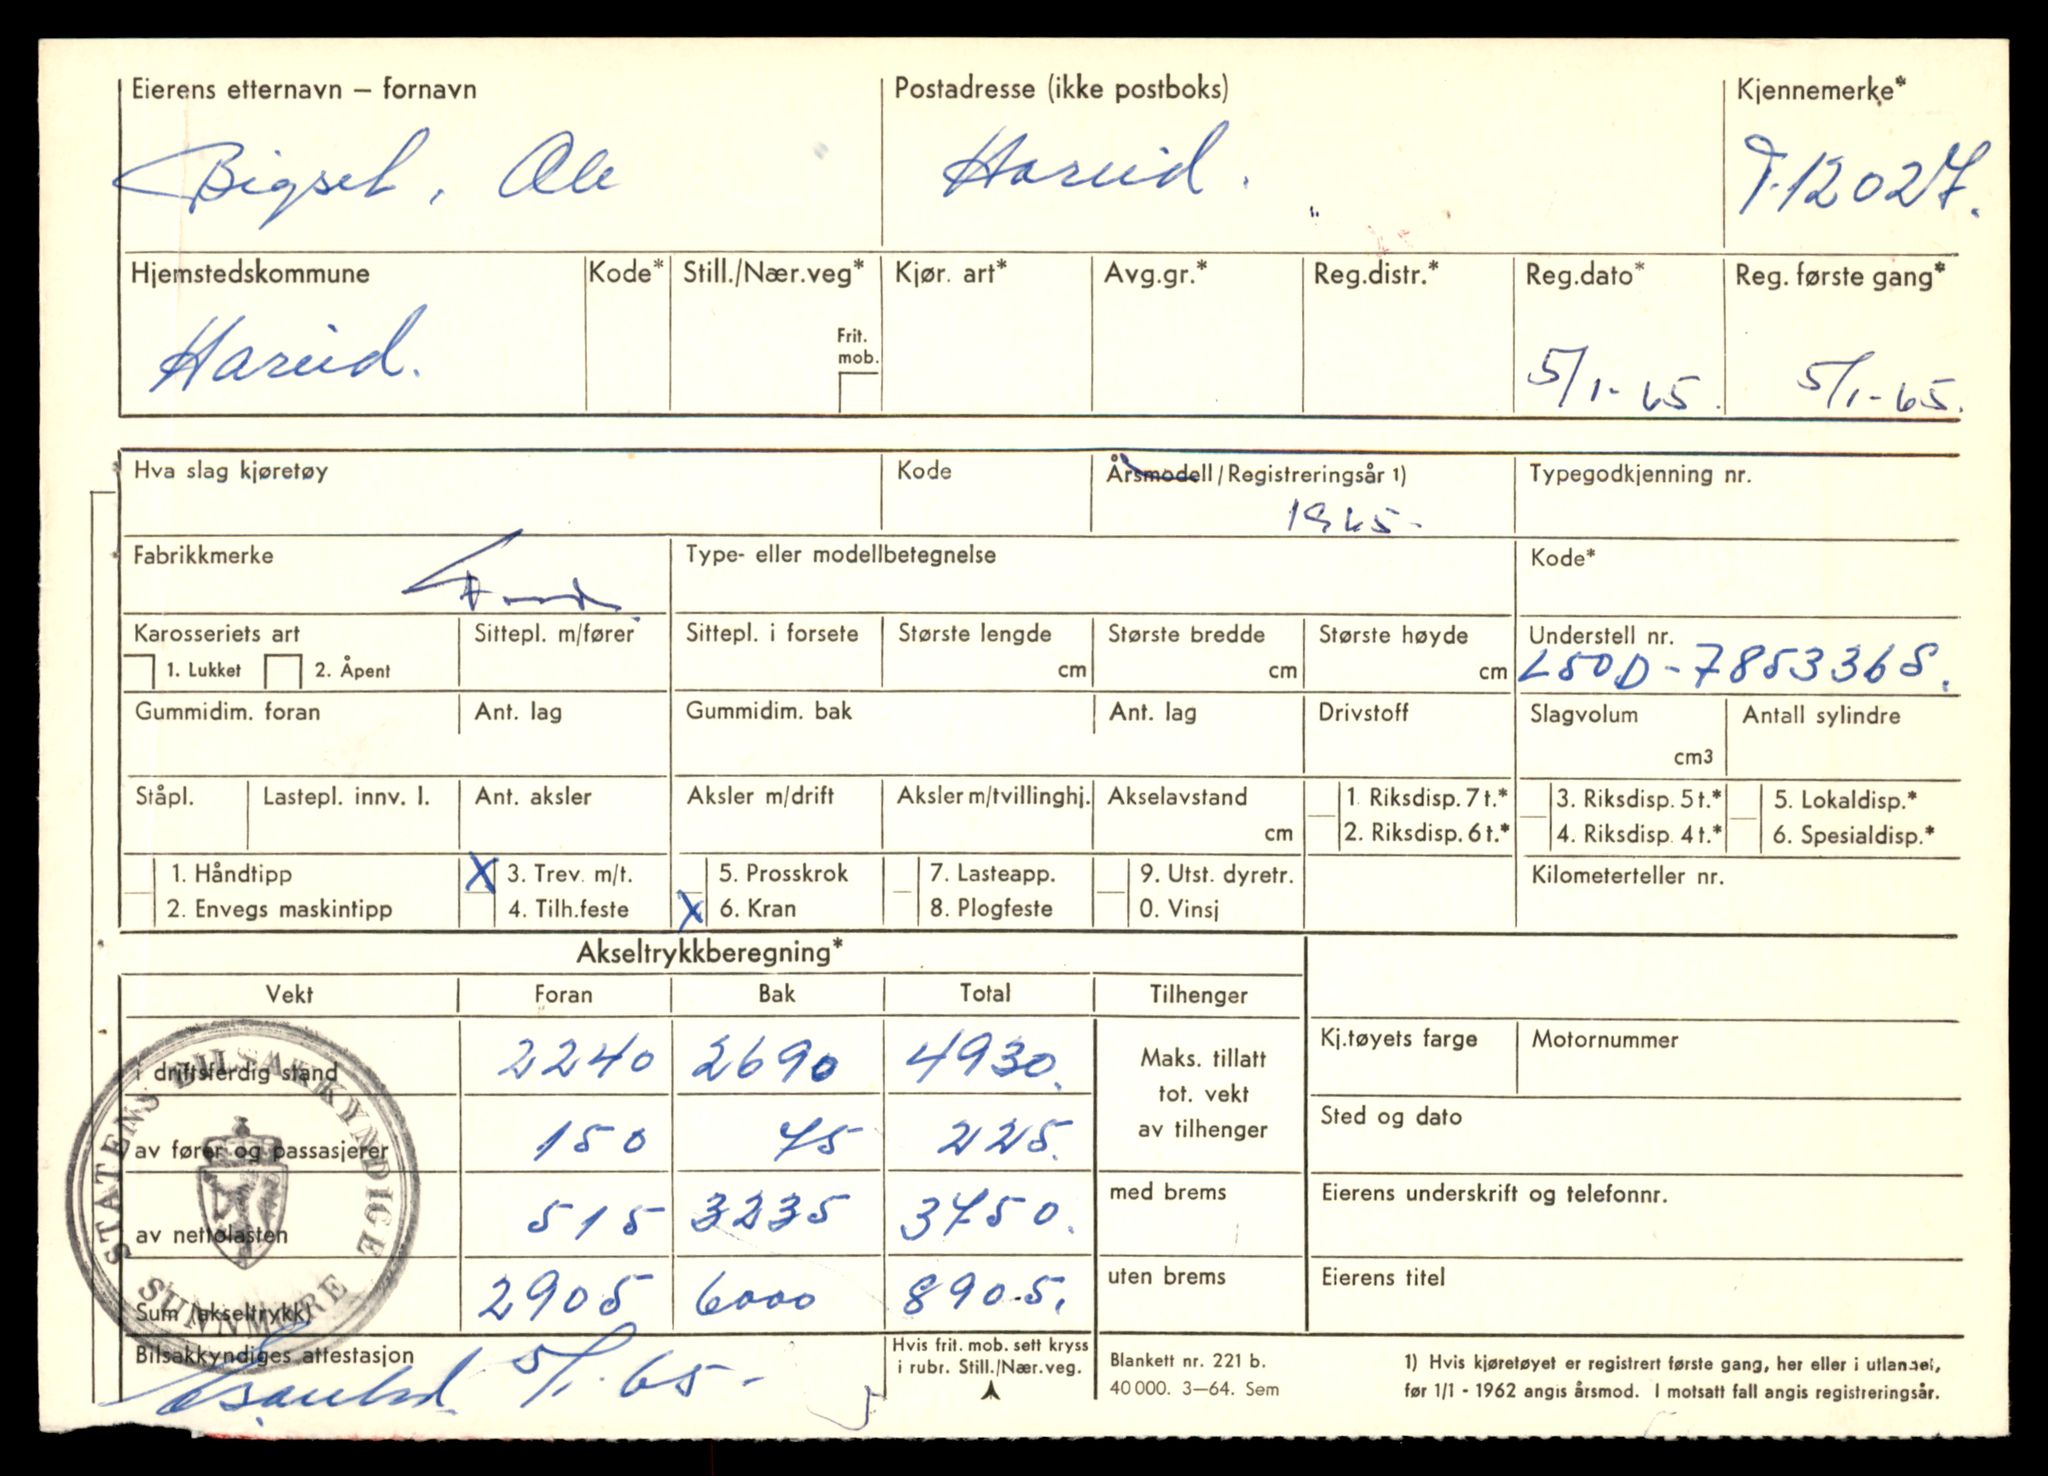 Eierens etternavn — fornavn Postadresse (ikke postboks) Kjennemerke*
Bigset, Ole Hareid. T-12027.
Hjemstedskommune Kode* Still./Nær.veg* Kjør. art* Avg.gr.* Reg.distr.* Reg.dato* Reg. første gang*
Frit. mob.
Hareid. 5/1-65. 5/1-65.
Hva slag kjøretøy Kode Årsmodell/Registreringsår 1) Typegodkjenning nr.
1965-
Fabrikkmerke Type- eller modellbetegnelse Kode*
Ford
Karosseriets art Sittepl. m/fører Sittepl. i forsete Største lengde Største bredde Største høyde Understell nr.
1. Lukket 2. Åpent cm cm cm L50D-785336S.
Gummidim. foran Ant. lag Gummidim. bak Ant. lag Drivstoff Slagvolum Antall sylindre
cm3
Ståpl. Lastepl. innv. l. Ant. aksler Aksler m/drift Aksler m/tvillinghj. Akselavstand 1. Riksdisp. 7 t.* 3. Riksdisp. 5 t.* 5. Lokaldisp.*
cm 2. Riksdisp. 6 t.* 4. Riksdisp. 4 t.* 6. Spesialdisp.*
1. Håndtipp X 3. Trev. m/t. 5. Prosskrok 7. Lasteapp. 9. Utst. dyretr. Kilometerteller nr.
2. Envegs maskintipp 4. Tilh.feste X 6. Kran 8. Plogfeste 0. Vinsj
Akseltrykkberegning*
Vekt Foran Bak Total Tilhenger
i driftsferdig stand 2240 2690 4930. Maks. tillatt tot. vekt av tilhenger Kj.tøyets farge Motornummer
av fører og passasjerer 150 75 225. Sted og dato
av nettolasten 515 3235 3750. med brems Eierens underskrift og telefonnr.
Sum (akseltrykk) 2905 6000 8905. uten brems Eierens titel
STATENS BILSAKKYNDIGE
SUNNMØRE
Bilsakkyndiges attestasjon 5/1-65- Hvis frit. mob. sett kryss i rubr. Still./Nær.veg.
Blankett nr. 221 b.
40 000. 3—64. Sem
1) Hvis kjøretøyet er registrert første gang, her eller i utlandet,
før 1/1 - 1962 angis årsmod. I motsatt fall angis registreringsår.